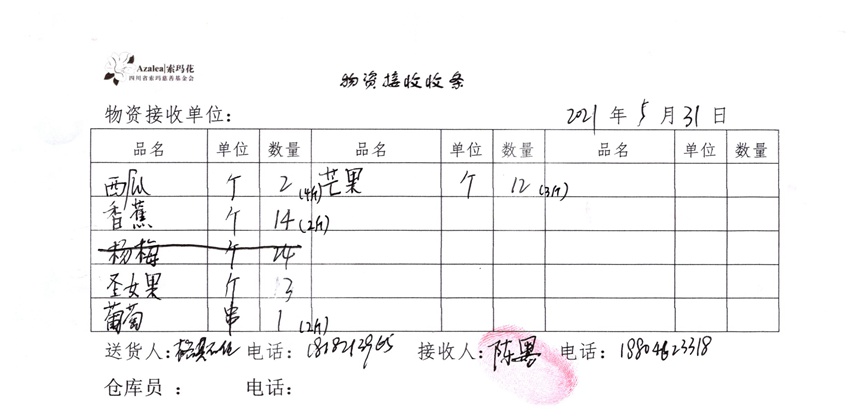 Azalea|索玛花
四川省索玛慈善基金会
物资接收收条
物资接收单位: 2021 年 5 月 31 日
品名 单位 数量 品名 单位 数量 品名 单位 数量
西瓜 个 2 (4斤) 芒果 个 12 (3斤)
香蕉 个 14 (2斤)
杨梅 个 24
圣女果 个 13
葡萄 串 1 (2斤)
送货人: 电话: 接收人: 陈 电话: 18804623318
仓库员 : 电话: